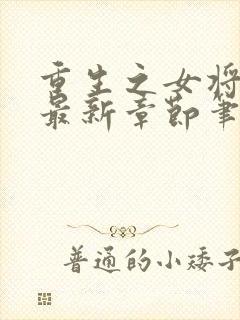 重生之女将
最新章节笔
普通的小矮子